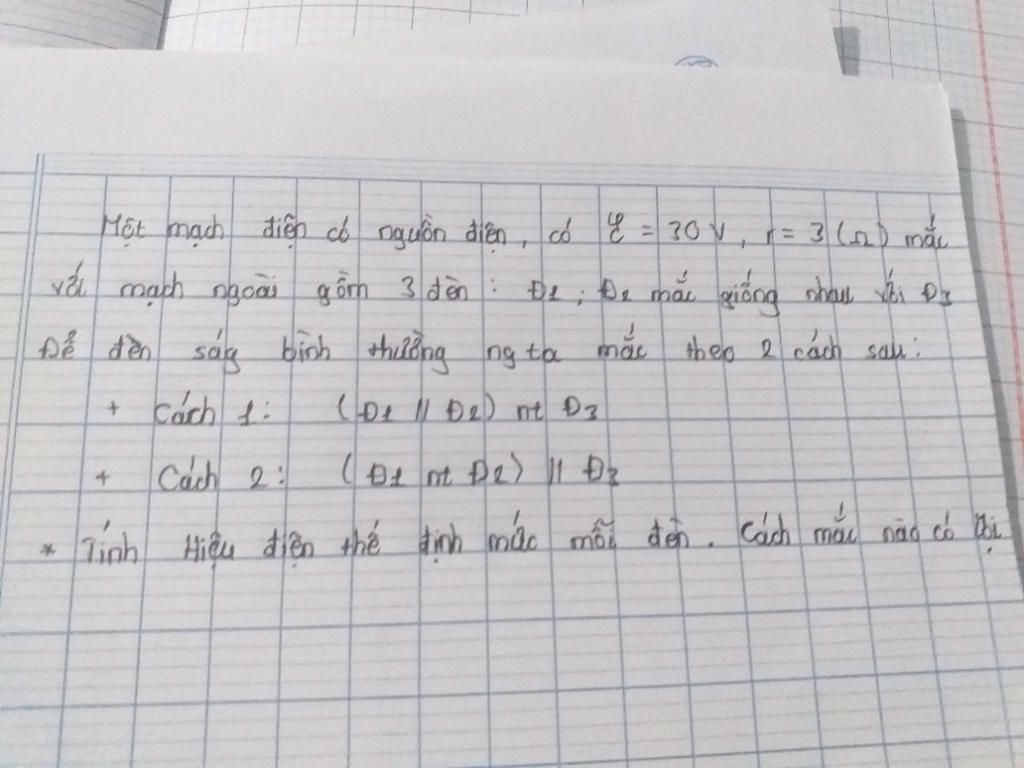 Một mạch điện có nguồn điện, có E = 30V, r = 3(Ω) mắc
với mạch ngoài gồm 3 đèn: Đ1; Đ2 mắc giống nhau với Đ3
Để đèn ság bình thường ng ta mắc theo 2 cách sau:
+ Cách 1: (Đ1 // Đ2) nt Đ3
+ Cách 2: (Đ1 nt Đ2) // Đ3
* Tính Hiệu điện thế định mác mỗi đèn. Cách mắc nào có lợi